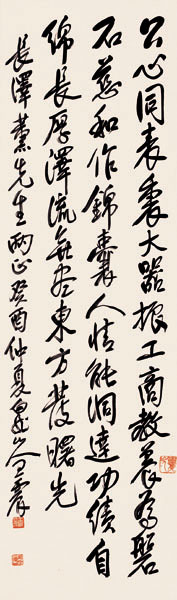 公心同表裏大器振工商教養為磐
石慈和作錦囊人情能洞達功績自
綿長厚澤流無盡東方發曙光
長澤薰先生 正癸酉仲夏 山人王震